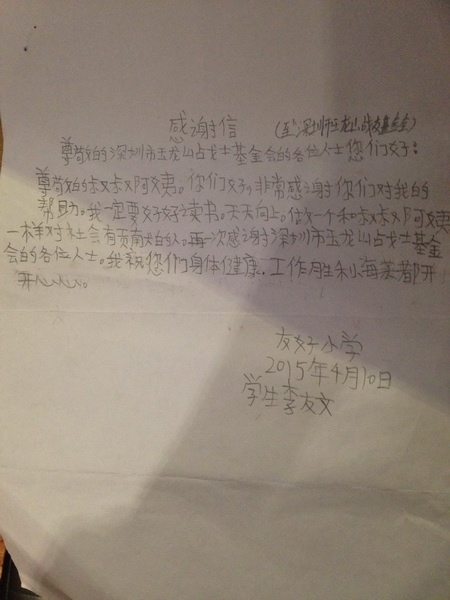 感谢信
(至深圳市玉龙山战友基金会)
尊敬的深圳市玉龙山占戈士基金会的各位人士您们好:
尊敬的叔叔阿姨。你们好,非常感谢你们对我的
帮助。我一定要好好读书。天天向上。做一个和叔叔阿姨
一样对社会有贡献的人。再一次感谢深圳市玉龙山占戈士基金
会的各位人士。我祝您们身体健康,工作胜利海天都开
开心心。
友好小学
2015年4月10日
学生李友文